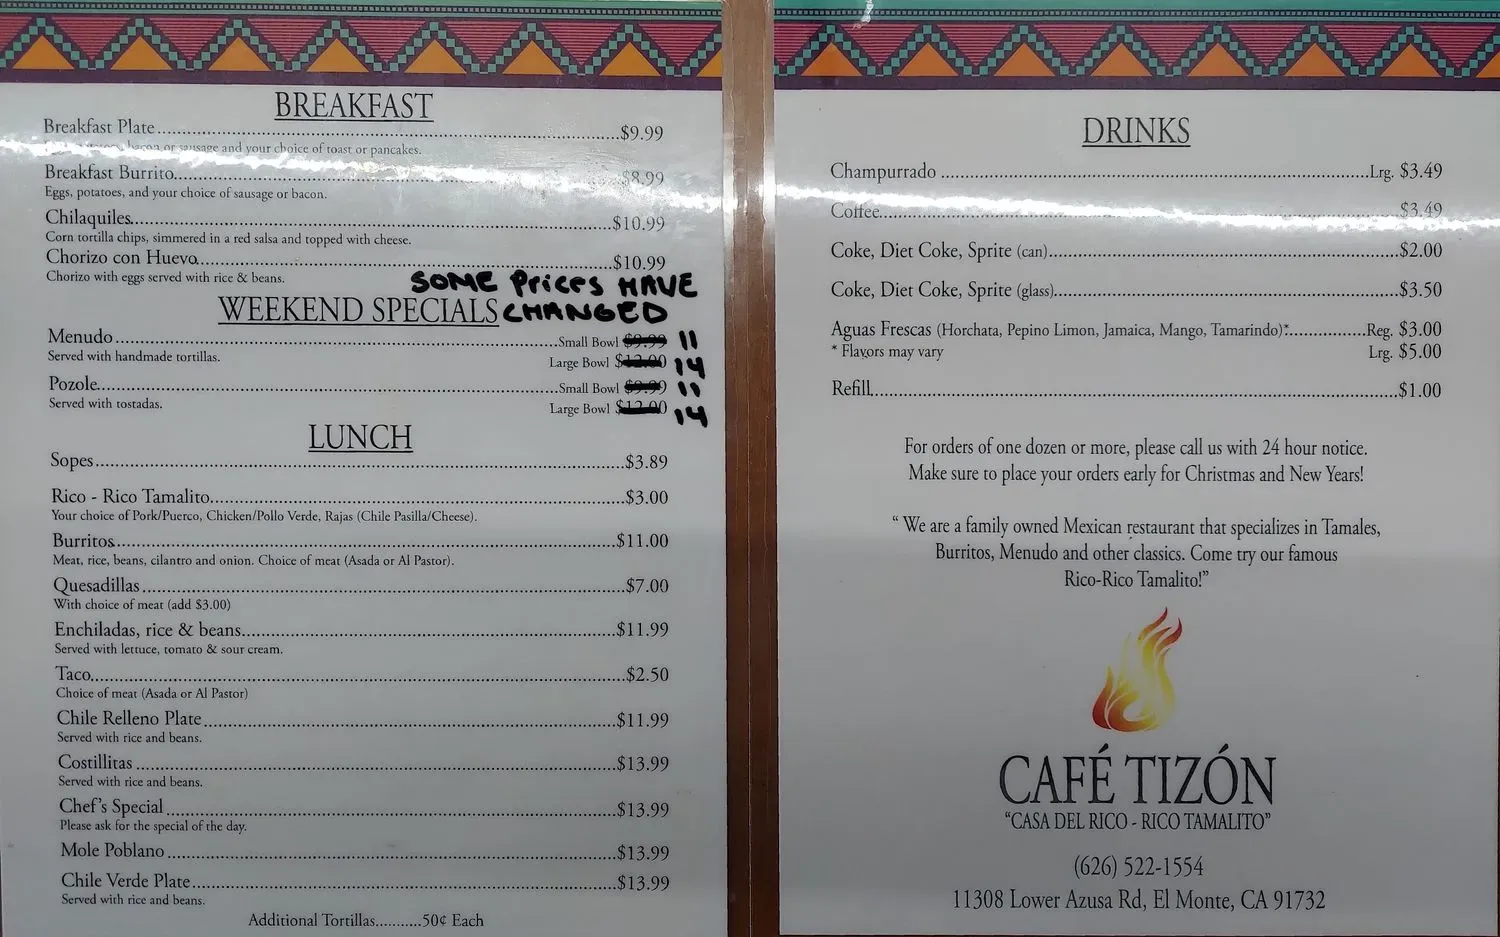 BREAKFAST
Breakfast Plate........$9.99
bacon or sausage and your choice of toast or pancakes.
Breakfast Burrito........$8.99
Eggs, potatoes, and your choice of sausage or bacon.
Chilaquiles........$10.99
Corn tortilla chips, simmered in a red salsa and topped with cheese.
Chorizo con Huevo........$10.99
Chorizo with eggs served with rice & beans.
SOME Prices HAVE
CHANGED
WEEKEND SPECIALS
Menudo........Small Bowl $9.99 11
Served with handmade tortillas.
Large Bowl $12.00 14
Pozole........Small Bowl $9.99 11
Served with tostadas.
Large Bowl $12.00 14
LUNCH
Sopes........$3.89
Rico - Rico Tamalito........$3.00
Your choice of Pork/Puerco, Chicken/Pollo Verde, Rajas (Chile Pasilla/Cheese).
Burritos........$11.00
Meat, rice, beans, cilantro and onion. Choice of meat (Asada or Al Pastor).
Quesadillas........$7.00
With choice of meat (add $3.00)
Enchiladas, rice & beans........$11.99
Served with lettuce, tomato & sour cream.
Taco........$2.50
Choice of meat (Asada or Al Pastor)
Chile Relleno Plate........$11.99
Served with rice and beans.
Costillitas........$13.99
Served with rice and beans.
Chef's Special........$13.99
Please ask for the special of the day.
Mole Poblano........$13.99
Chile Verde Plate........$13.99
Served with rice and beans.
Additional Tortillas..........50¢ Each
DRINKS
Champurrado........Lrg. $3.49
Coffee........$3.49
Coke, Diet Coke, Sprite (can)........$2.00
Coke, Diet Coke, Sprite (glass)........$3.50
Aguas Frescas (Horchata, Pepino Limon, Jamaica, Mango, Tamarindo)*........Reg. $3.00
* Flavors may vary Lrg. $5.00
Refill........$1.00
For orders of one dozen or more, please call us with 24 hour notice.
Make sure to place your orders early for Christmas and New Years!
“ We are a family owned Mexican restaurant that specializes in Tamales,
Burritos, Menudo and other classics. Come try our famous
Rico-Rico Tamalito!”
CAFÉ TIZÓN
“CASA DEL RICO - RICO TAMALITO”
(626) 522-1554
11308 Lower Azusa Rd, El Monte, CA 91732